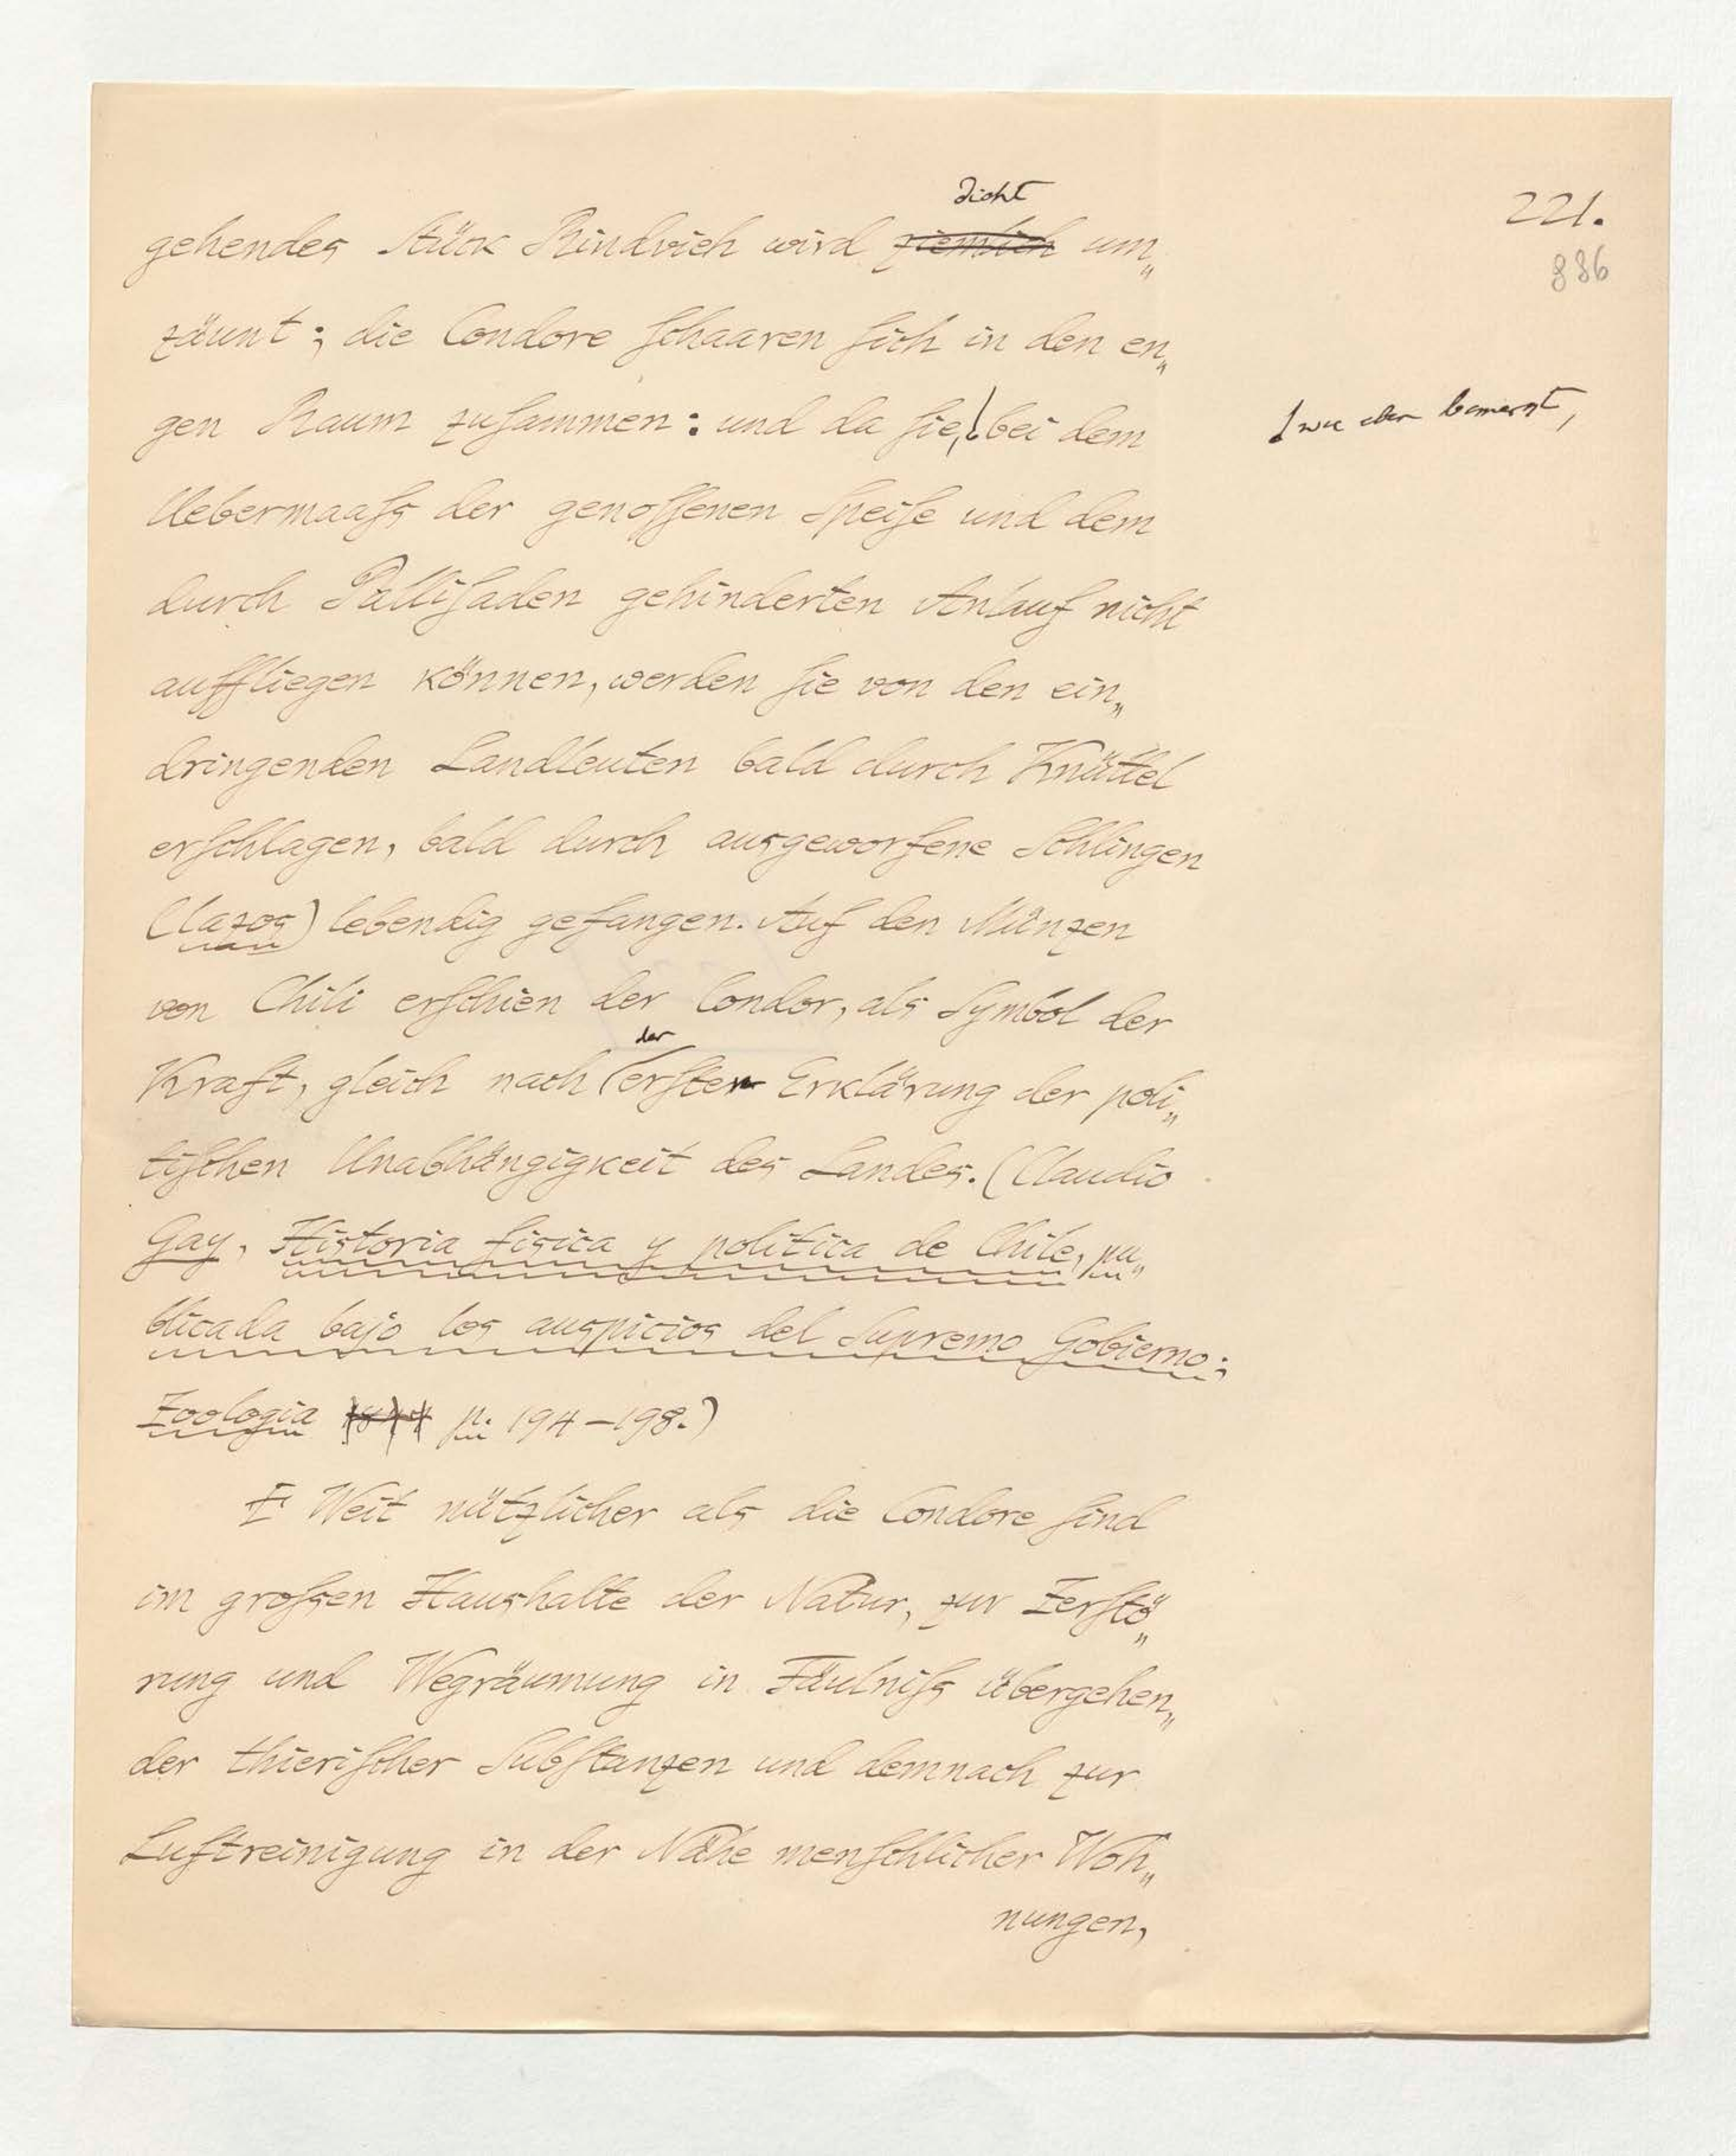 221.
886
dicht
gehendes Stück Rindvieh wird ziemlich um„
zäunt; die Condore schaaren sich in den en„
gen Raum zusammen: und da sie, bei dem
wie eben bemerkt,
Uebermaaſs der genossenen Speise und dem
durch Pallisaden gehinderten Anlauf nicht
auffliegen können, werden sie von den ein„
dringenden Landleuten bald durch Knüttel
erschlagen, bald durch ausgeworfene Schlingen
(lazos) lebendig gefangen. Auf den Münzen
von Chili erschien der Condor, als Symbol der
der
Kraft, gleich nach ersten Erklärung der poli„
tischen Unabhängigkeit des Landes. (Claudio
Gay, Historia fisica y politica de Chile, pu„
blicada bajo los auspicios del Supremo Gobierno;
Zoologia 1844 p. 194–198.)
Weit nützlicher als die Condore sind
im groſsen Haushalte der Natur, zur Zerstö„
rung und Wegräumung in Fäulniſs übergehen„
der thierischer Substanzen und demnach zur
Luftreinigung in der Nähe menschlicher Woh„
nungen,